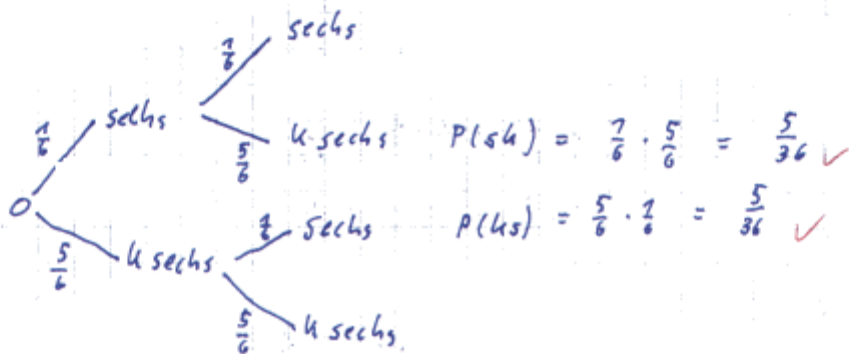 1/6 sechs
1/6 sechs
5/6 k sechs P(sk) = 1/6 · 5/6 = 5/36 ✓
O
5/6 k sechs 1/6 sechs P(ks) = 5/6 · 1/6 = 5/36 ✓
5/6 k sechs